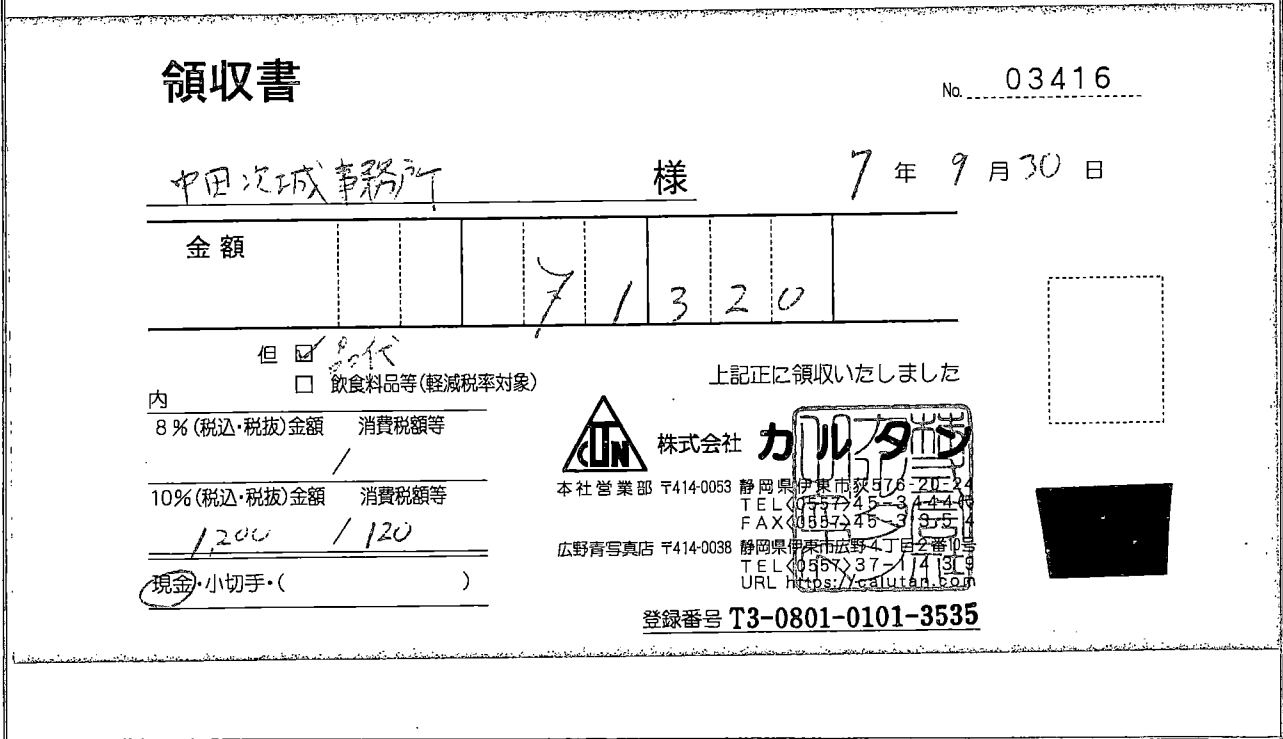 領収書
No. 03416
中田次城事務所 様
7年9月30日
金額 ¥1320
但 ☑ 品代
□ 飲食料品等(軽減税率対象)
上記正に領収いたしました
内
8%(税込・税抜)金額 消費税額等
/
10%(税込・税抜)金額 消費税額等
1,200 / 120
現金・小切手・( )
CTN 株式会社 カルタン
本社営業部 〒414-0053 静岡県伊東市荻576-20-24
TEL<0557>45-3444㈹
FAX<0557>45-3354
広野青写真店 〒414-0038 静岡県伊東市広野4丁目2番10号
TEL<0557>37-1439
URL https://calutan.com
登録番号 T3-0801-0101-3535